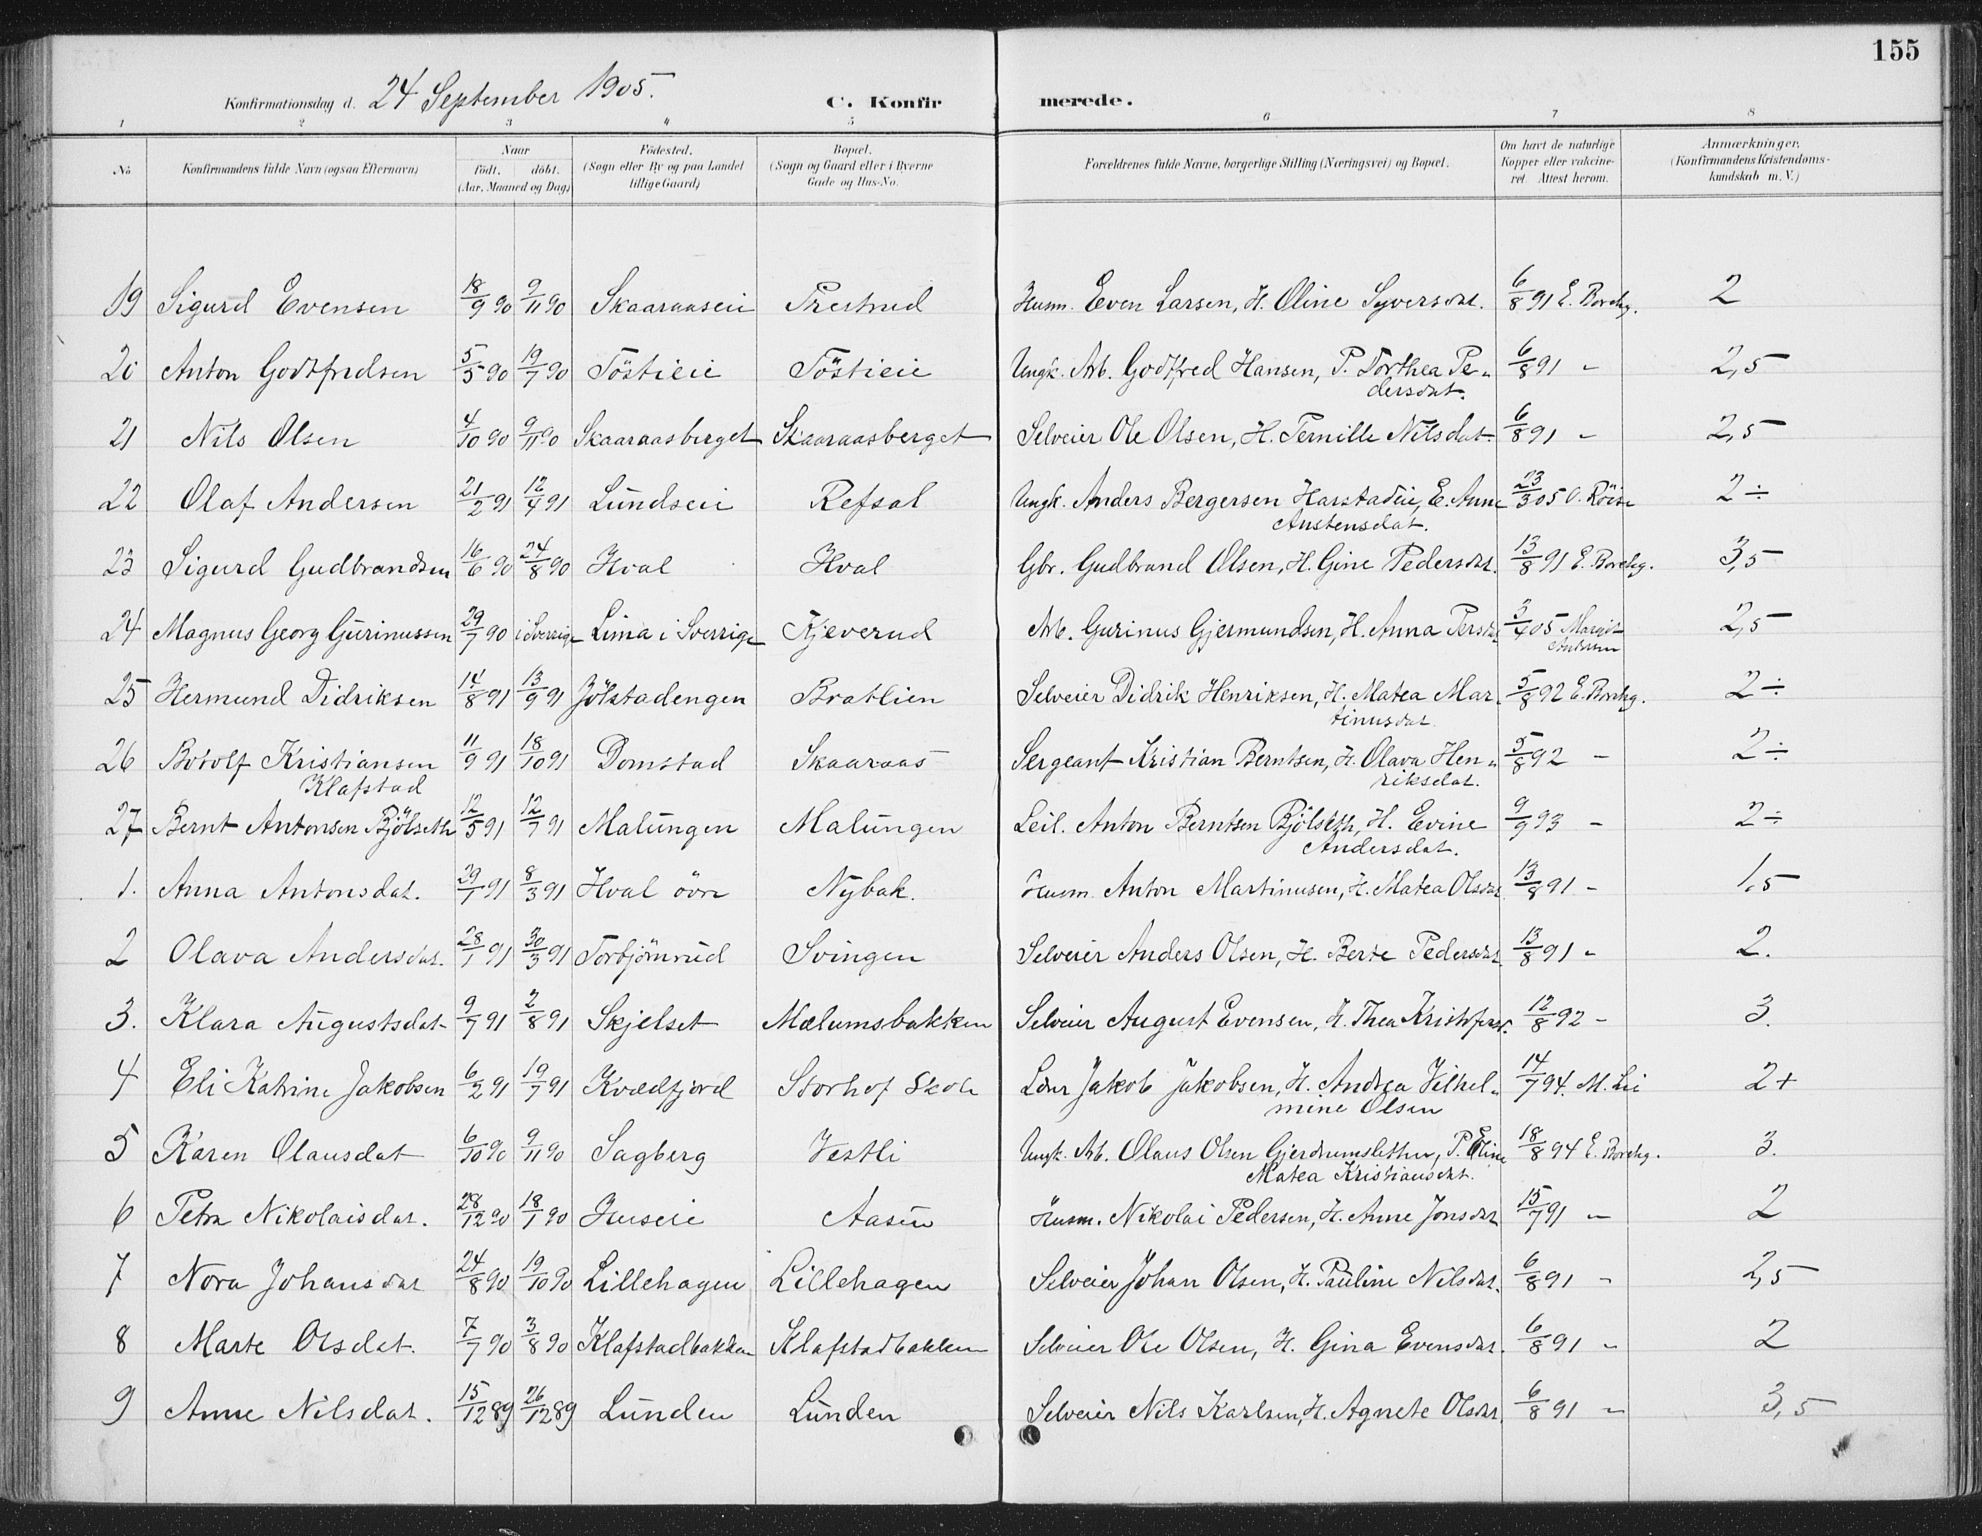 155
Konfirmationsdag d. 24 September 1905. C. Konfir merede.
1 2 3 4 5 6 7 8
No. Konfirmandens fulde Navn (ogsaa Efternavn) Naar födt. döbt. (Aar, Maaned og Dag) Födested. (Sogn eller By og paa Landet tillige Gaard) Bopæl. (Sogn og Gaard eller i Byerne Gade og Hus-No. Forældrenes fulde Navne, borgerlige Stilling (Næringsvei) og Bopæl. Om havt de naturlige Kopper eller vakcineret. Attest herom. Anmærkninger. (Konfirmandens Kristendomskundskab m. V.)
19 Sigurd Evensen 18/9 90 9/11 90 Skaaraaseie Prestrud Husm. Even Larsen, H. Oline Syversdat. 6/8 91 E. Borchg. 2
20 Anton Godtfredsen 5/5 90 19/7 90 Töstieie Töstieie Ungk. Arb. Godtfred Hansen, P. Dorthea Pe- 6/8 91 " 2,5
dersdat.
21 Nils Olsen 4/10 90 9/11 90 Skaaraasberget Skaaraasberget Selveier Ole Olsen, H. Pernille Nilsdat. 6/8 91 " 2,5
22 Olaf Andersen 21/2 91 12/4 91 Lundseie Refsal Ungk. Anders Bergersen Harstadeie, E. Anne 23/3 05 O. Röise 2 ÷
Austensdat.
23 Sigurd Gudbrandsen 16/6 90 24/8 90 Hval Hval Gbr. Gudbrand Olsen, H. Gine Pedersdat. 13/8 91 E. Borchg. 3,5
24 Magnus Georg Gurinussen 29/7 90 i Sverrige Lima i Sverrige Kjeverud Arb. Gurinus Gjermundsen, H. Anna Persdat 3/4 05 Margit 2,5
Andersen
25 Hermund Didriksen 14/8 91 13/9 91 Jölstadengen Bratlien Selveier Didrik Henriksen, H. Matea Mar- 5/8 92 E. Borchg. 2 ÷
tinusdat.
26 Botolf Kristiansen 11/9 91 18/10 91 Domstad Skaaraas Sergeant Kristian Berntsen, H. Olava Hen- 5/8 92 " 2 ÷
Klafstad riksdat.
27 Bernt Antonsen Bjölseth 12/5 91 12/7 91 Malungen Malungen Leil. Anton Berntsen Bjölseth, H. Evine 9/9 93 " 2 ÷
Andersdat.
1. Anna Antonsdat. 29/1 91 8/3 91 Hval övre Nybak. Husm. Anton Martinusen, H. Matea Olsdat 13/8 91 " 1,5
2 Olava Andersdat. 28/1 91 30/3 91 Torbjörnrud Svingen Selveier Anders Olsen, H. Berte Pedersdat 13/8 91 " 2.
3. Klara Augustsdat. 9/7 91 2/8 91 Skjelset Mælumsbakken Selveier August Evensen, H. Thea Kristofersd. 12/8 92 " 3.
4 Eli Katrine Jakobsen 6/2 91 19/7 91 Kvædfjord Storhof Skole Lærer Jakob Jakobsen, H. Andrea Vilhel- 14/7 94. M. Lie 2 +
mine Olsen
5 Karen Olausdat 6/10 90 9/11 90 Sagberg Vestli Ungk. Arb. Olaus Olsen Gjerdrumsletten, P. Eline 18/8 94 E. Borchg. 3.
Matea Kristiansdat.
6 Petra Nikolaisdat. 28/12 90 18/1 90 Huseie Aasen Husm. Nikolai Pedersen, H. Anne Jonsdat 15/7 91 " 2
7 Nora Johansdat 24/8 90 19/10 90 Lillehagen Lillehagen Selveier Johan Olsen, H. Pauline Nilsdat. 6/8 91 " 2,5
8 Marte Olsdat. 7/7 90 3/8 90 Klafstadbakken Klafstadbakken Selveier Ole Olsen, H. Gina Evensdat. 6/8 91 " 2
9 Anne Nilsdat. 15/12 89 26/12 89 Lunden Lunden Selveier Nils Karlsen, H. Agnete Olsdat. 6/8 91 " 3,5